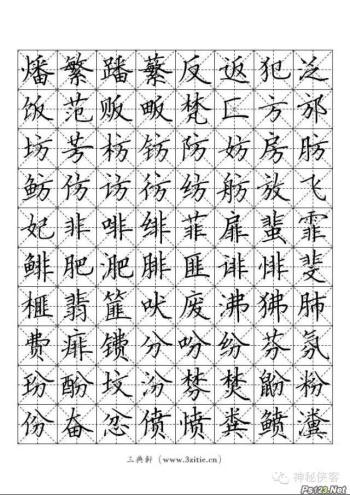 燔繁蹯蘩反返犯泛
饭范贩畈梵匚方邡
坊芳枋钫防妨房肪
鲂仿访彷纺舫放飞
妃非啡绯菲扉蜚霏
鲱肥淝腓匪诽悱斐
榧翡篚吠废沸狒肺
费痱镄分吩纷芬氛
玢酚坟汾棼焚鼢粉
份奋忿偾愤粪鲼瀵
三典轩（www.3zitie.cn）
神秘侠客
Ps123.Net